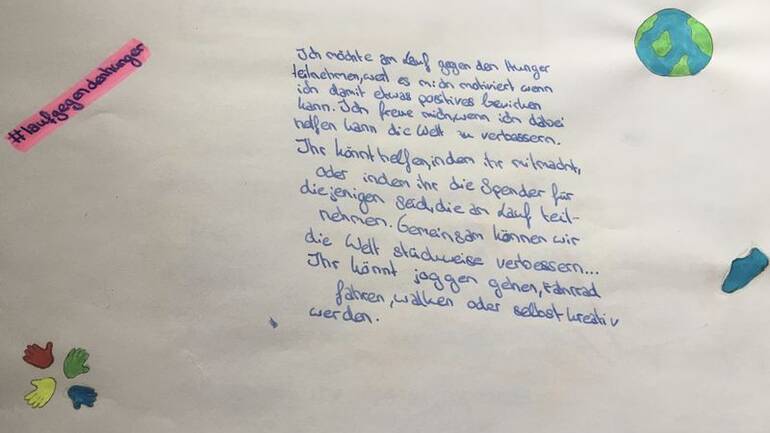 #laufgegendenhunger
Ich möchte am Lauf gegen den Hunger
teilnehmen, weil es mich motiviert wenn
ich damit etwas positives bewirken
kann. Ich freue mich, wenn ich dabei
helfen kann die Welt zu verbessern.
Ihr könnt helfen, inden ihr mitmacht,
oder inden ihr die Spender für
diejenigen seid, die am Lauf teil-
nehmen. Gemeinsam können wir
die Welt stückweise verbessern...
Ihr könnt joggen gehen, Fahrrad
fahren, walken oder selbst kreativ
werden.